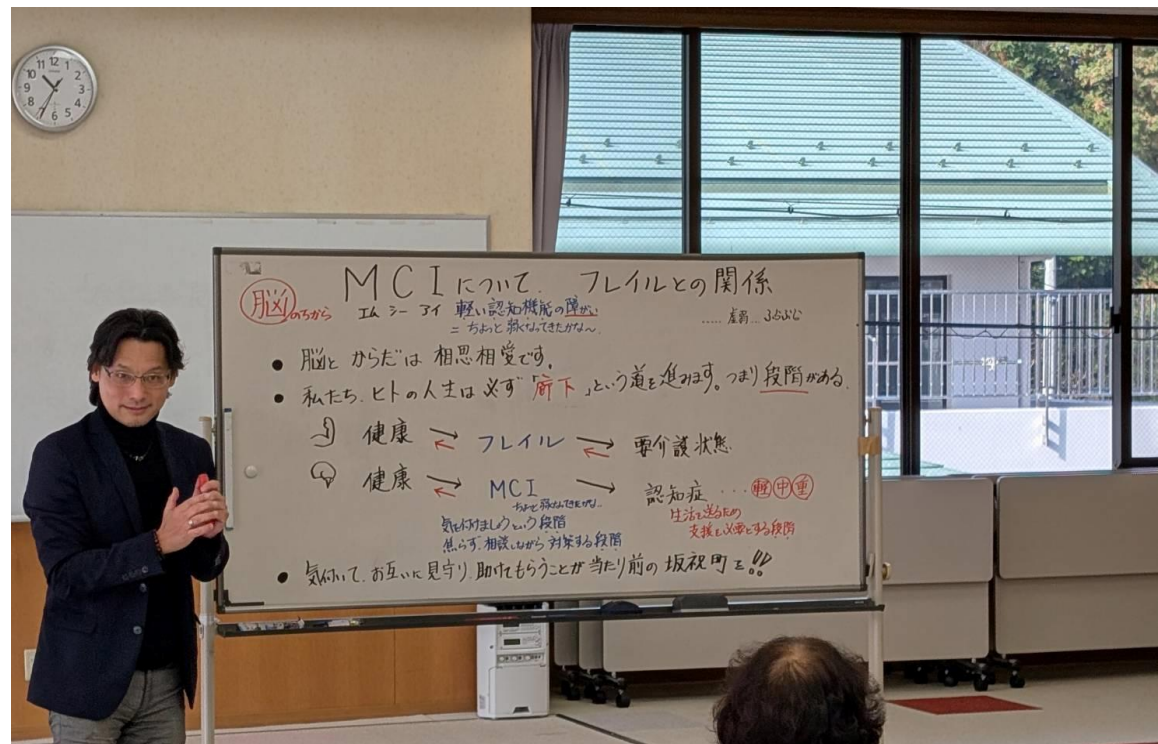 MCIについて. フレイルとの関係
脳のちから エム シー アイ 軽い認知機能の障がい ..... 虚弱... ふらふら
= ちょっと弱くなってきたかな〜
● 脳と からだは 相思相愛です。
● 私たち、ヒトの人生は必ず「廊下」という道を進みます。つまり段階がある.
健康 フレイル 要介護状態
健康 MCI 認知症 ... 軽中重
ちょっと弱くなってきたかな..
気を付けましょうという段階
焦らず、相談しながら対策する段階
生活を送るため
支援を必要とする段階
● 気付いて、お互いに見守り、助けてもらうことが当たり前の坂祝町を!!
11 12 1
10 2
9 3
8 4
7 6 5